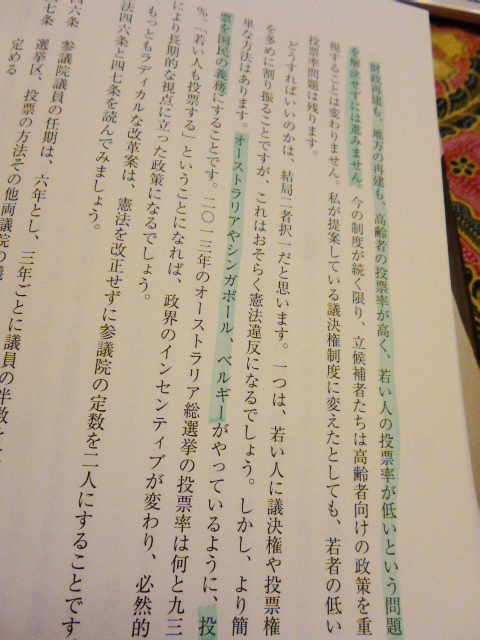 財政再建も、地方の再建も、高齢者の投票率が高く、若い人の投票率が低いという問題
を解決せずには進みません。今の制度が続く限り、立候補者たちは高齢者向けの政策を重
視することは変わりません。私が提案している議決権制度に変えたとしても、若者の低い
投票率問題は残ります。
どうすればいいのかは、結局二者択一だと思います。一つは、若い人に議決権や投票権
を多めに割り振ることですが、これはおそらく憲法違反になるでしょう。しかし、より簡
単な方法はあります。オーストラリアやシンガポール、ベルギーがやっているように、投
票を国民の義務にすることです。二〇一三年のオーストラリア総選挙の投票率は何と九三
%。「若い人も投票する」ということになれば、政界のインセンティブが変わり、必然的
により長期的な視点に立った政策になるでしょう。
もっともラディカルな改革案は、憲法を改正せずに参議院の定数を二人にすることです
法四六条と四七条を読んでみましょう。
四六条 参議院議員の任期は、六年とし、三年ごとに議員の半数を
四七条 選挙区、投票の方法その他両議院の
定める